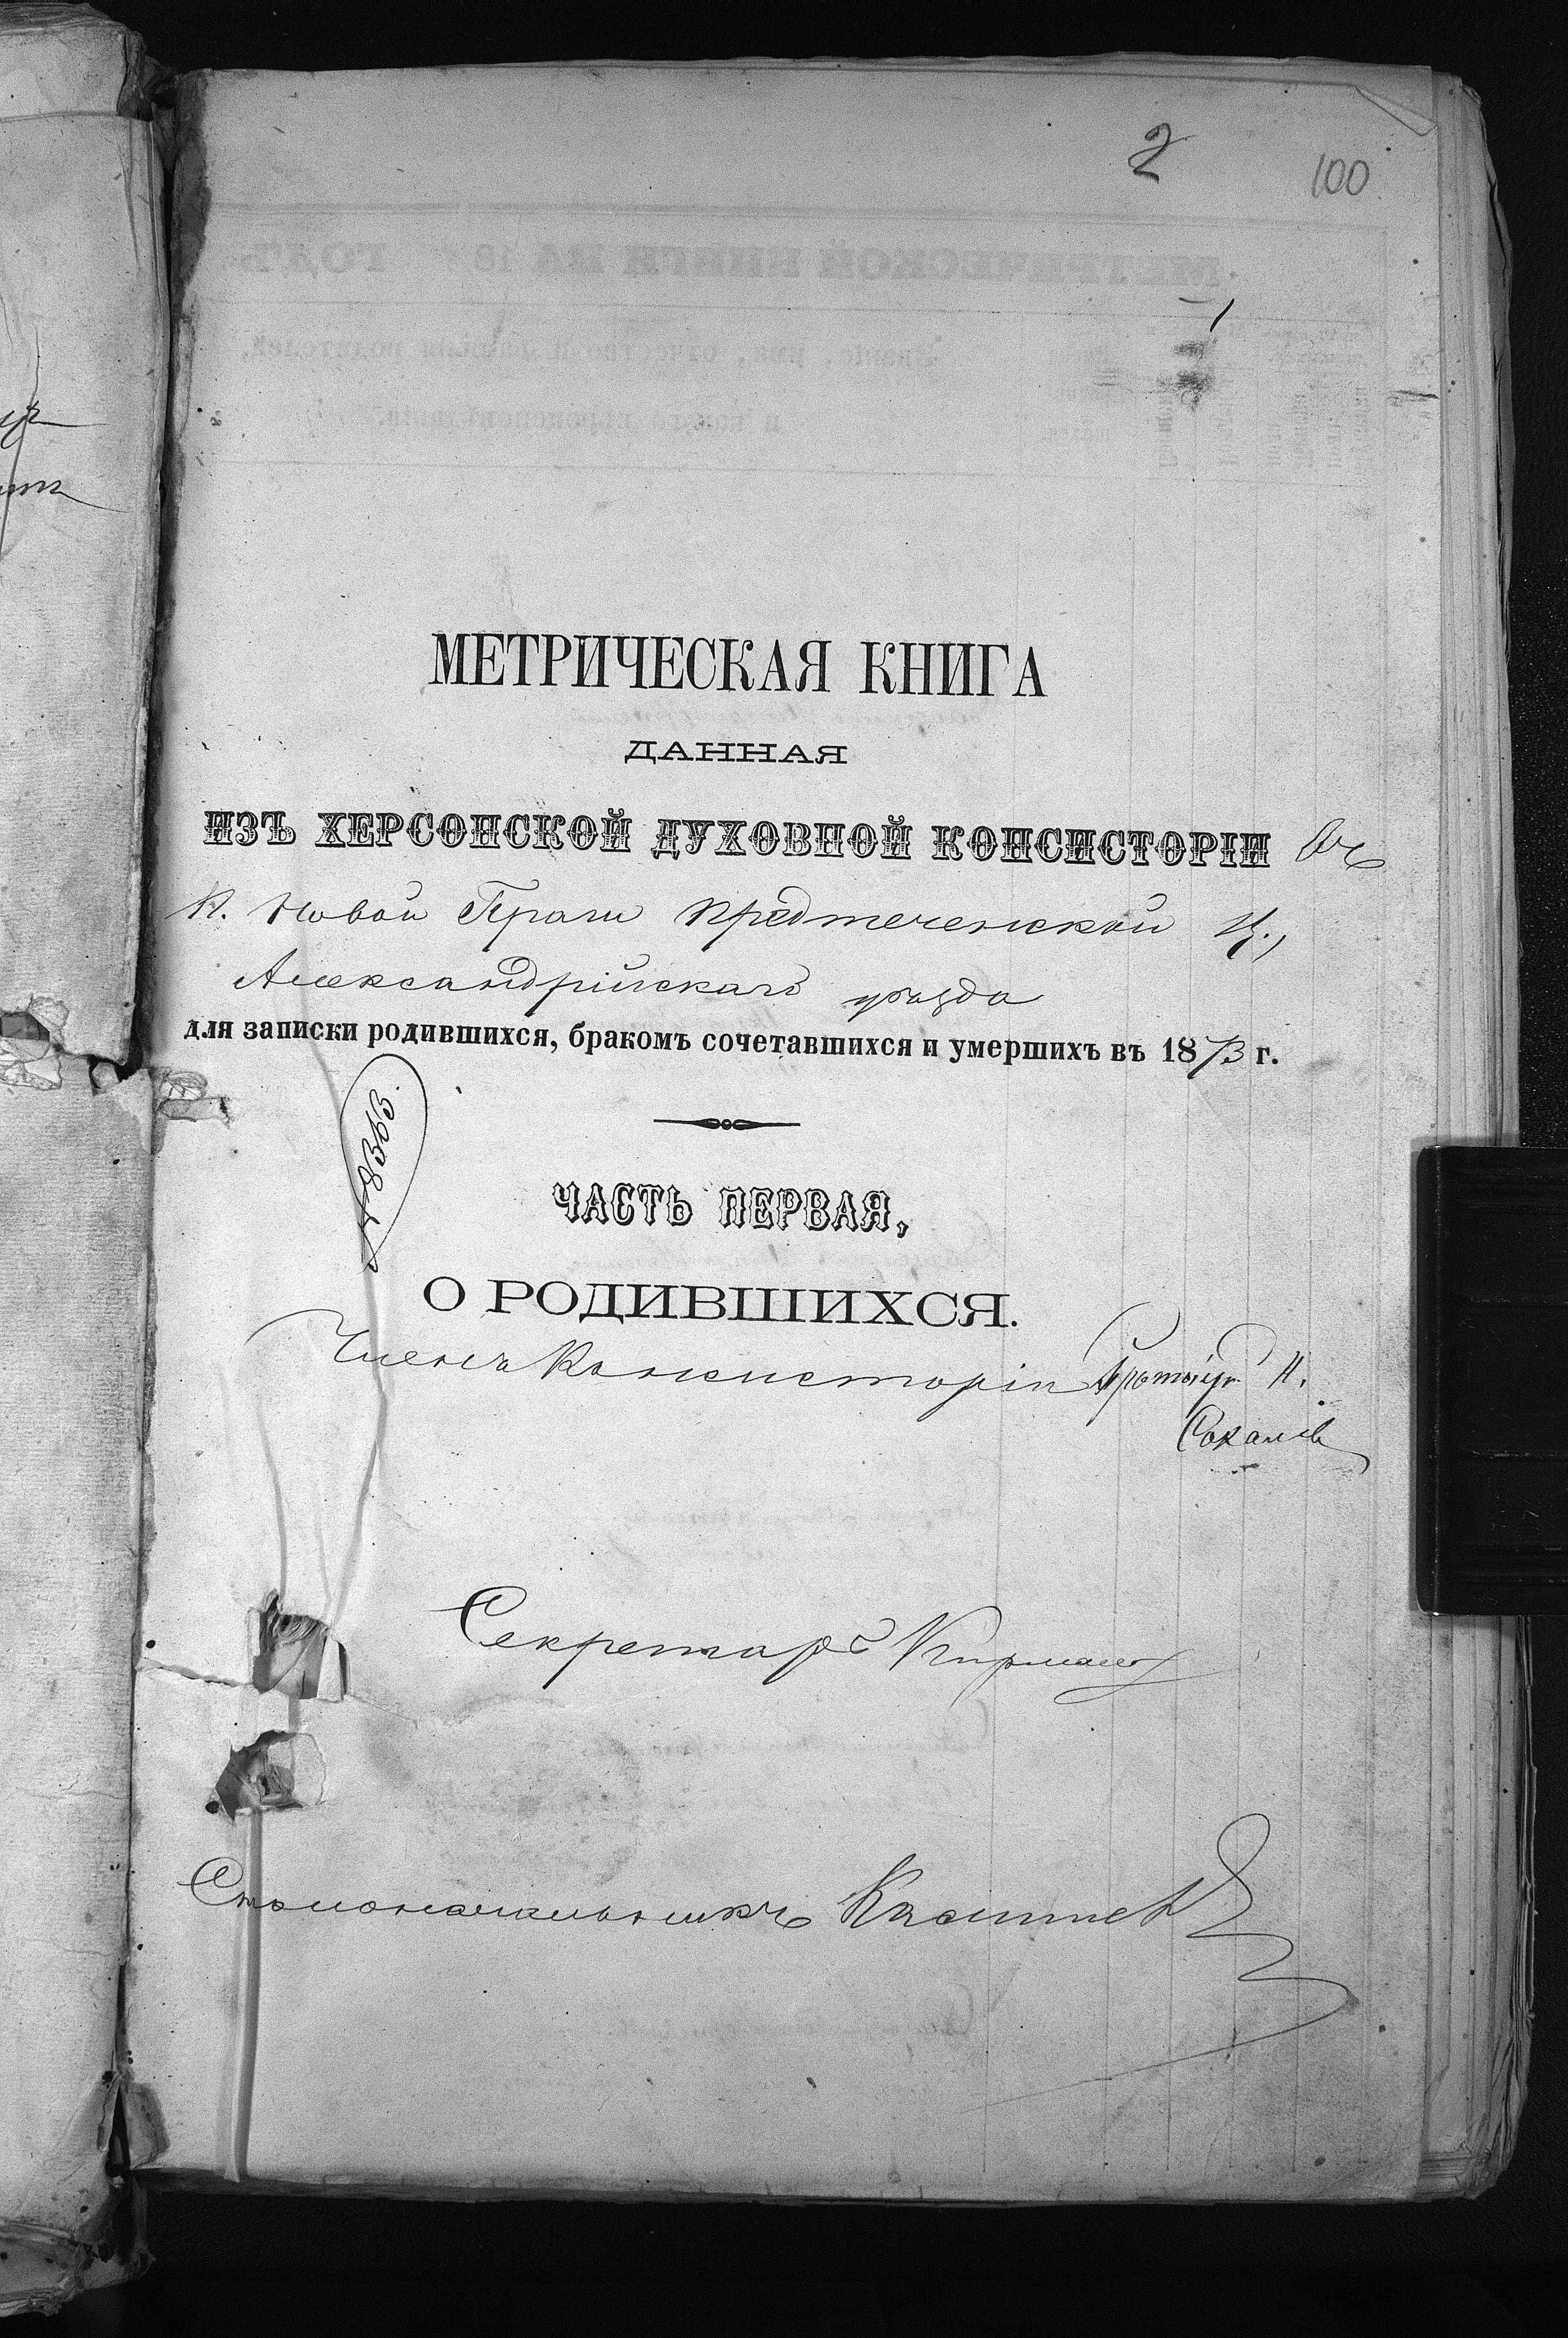 2
100
МЕТРИЧЕСКАЯ КНИГА
ДАННАЯ
ИЗЪ ХЕРСОНСКОЙ ДУХОВНОЙ КОНСИСТОРІИ Въ
п. Новой Праги Предтеченской ц.,
Александрійскаго уѣзда
для записки родившихся, бракомъ сочетавшихся и умершихъ въ 1873 г.
ЧАСТЬ ПЕРВАЯ,
О РОДИВШИХСЯ.
Членъ Консисторіи Протоіер. Н.
Соколовъ
Секретарь
Столоначальникъ